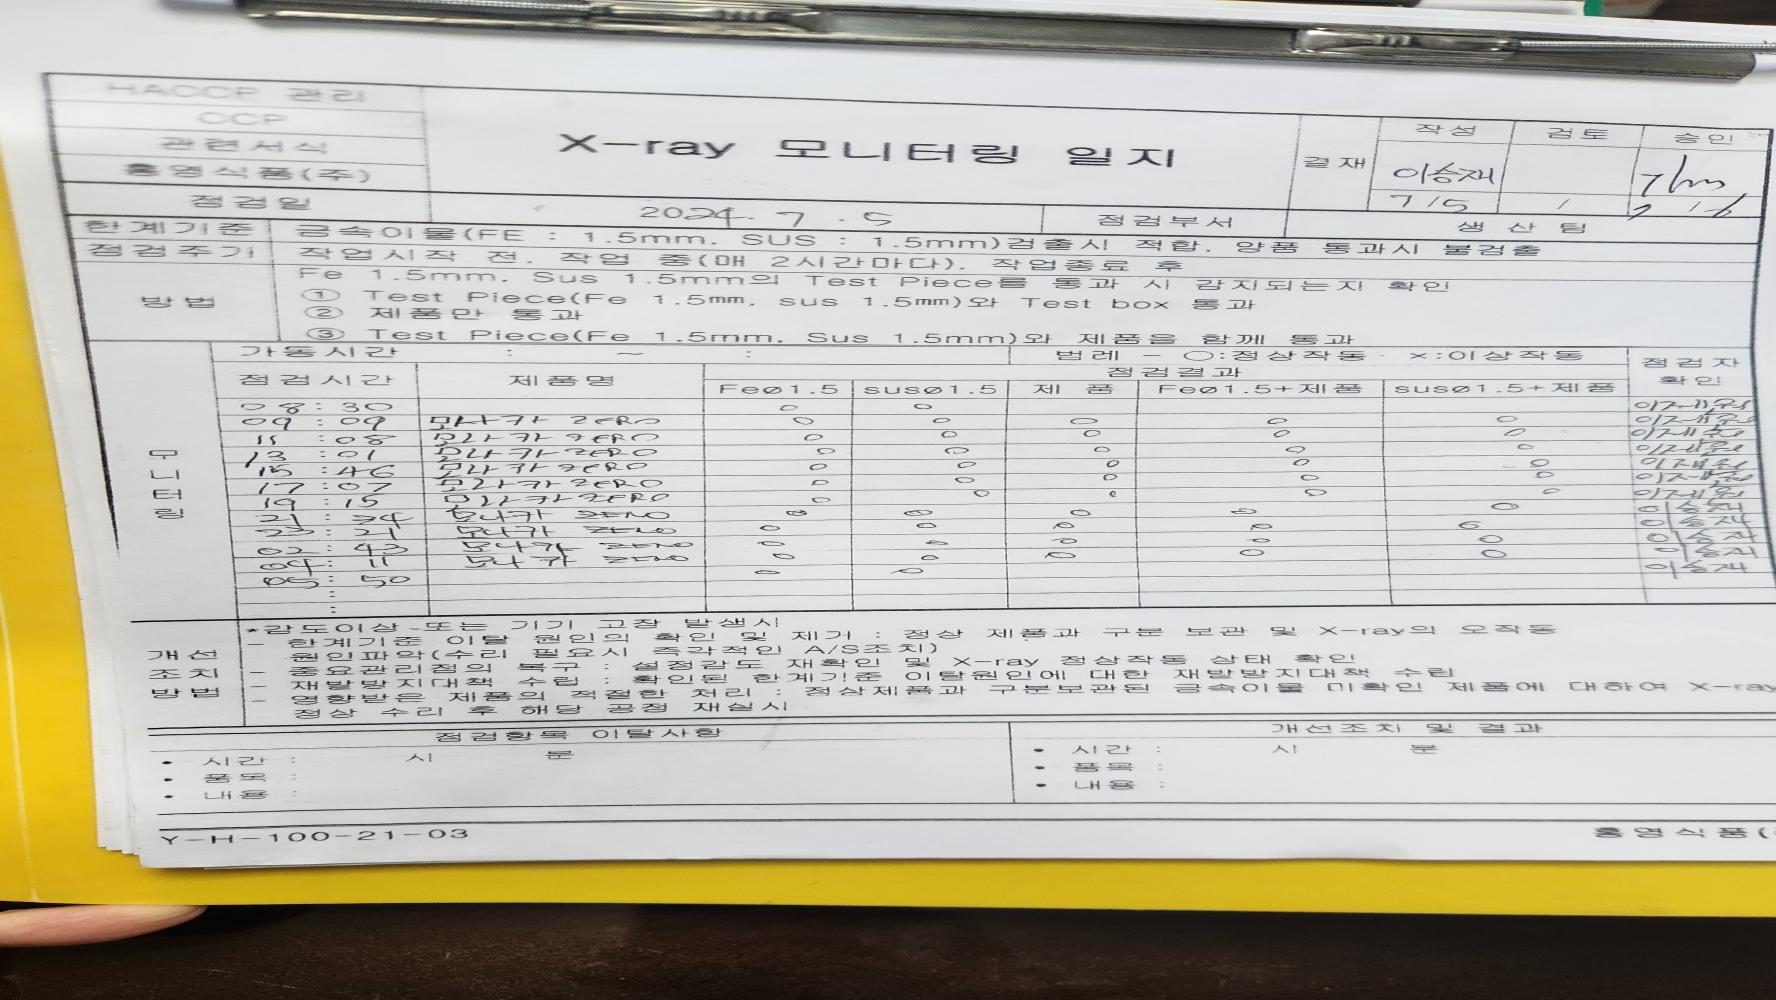 HACCP 관리
CCP
관련서식
홍영식품(주)
X-ray 모니터링 일지
결재 작성 검토 승인
이승재
7/5 /
점검일 2024. 7 . 5 점검부서 생 산 팀
한계기준 금속이물(FE : 1.5mm. SUS : 1.5mm)검출시 적합. 양품 통과시 불검출
점검주기 작업시작 전. 작업 중(매 2시간마다). 작업종료 후
방법 Fe 1.5mm. Sus 1.5mm의 Test Piece를 통과 시 감지되는지 확인
① Test Piece(Fe 1.5mm. sus 1.5mm)와 Test box 통과
② 제품만 통과
③ Test Piece(Fe 1.5mm. Sus 1.5mm)와 제품을 함께 통과
모니터링
가동시간 : ~ : 범례 - ○:정상작동 ×:이상작동
점검시간 제품명 점검결과 점검자 확인
Feø1.5 susø1.5 제 품 Feø1.5+제품 susø1.5+제품
08 : 30 ○ ○
09 : 09 모나카 ZERO ○ ○ ○ ○ ○
11 : 08 모나카 ZERO ○ ○ ○ ○ ○
13 : 01 모나카 ZERO ○ ○ ○ ○ ○
15 : 46 모나카 ZERO ○ ○ ○ ○ ○
17 : 07 모나카 ZERO ○ ○ ○ ○ ○
19 : 15 모나카 ZERO ○ ○ ○ ○ ○
21 : 34 모나카 ZERO ○ ○ ○ ○ ○ 이승재
23 : 21 모나카 ZERO ○ ○ ○ ○ ○ 이승재
02 : 43 모나카 ZERO ○ ○ ○ ○ ○ 이승재
04 : 11 모나카 ZERO ○ ○ ○ ○ ○ 이승재
05 : 50 ○ ○ 이승재
:
:
개선
조치
방법
*감도이상 또는 기기 고장 발생시
- 한계기준 이탈 원인의 확인 및 제거 : 정상 제품과 구분 보관 및 X-ray의 오작동
원인파악(수리 필요시 즉각적인 A/S조치)
- 중요관리점의 복구 : 설정감도 재확인 및 X-ray 정상작동 상태 확인
- 재발방지대책 수립 : 확인된 한계기준 이탈원인에 대한 재발방지대책 수립
- 영향받은 제품의 적절한 처리 : 정상제품과 구분보관된 금속이물 미확인 제품에 대하여 X-ray
정상 수리 후 해당 공정 재실시
점검항목 이탈사항 개선조치 및 결과
• 시간 : 시 분 • 시간 : 시 분
• 품목 : • 품목 :
• 내용 : • 내용 :
Y-H-100-21-03 홍영식품(